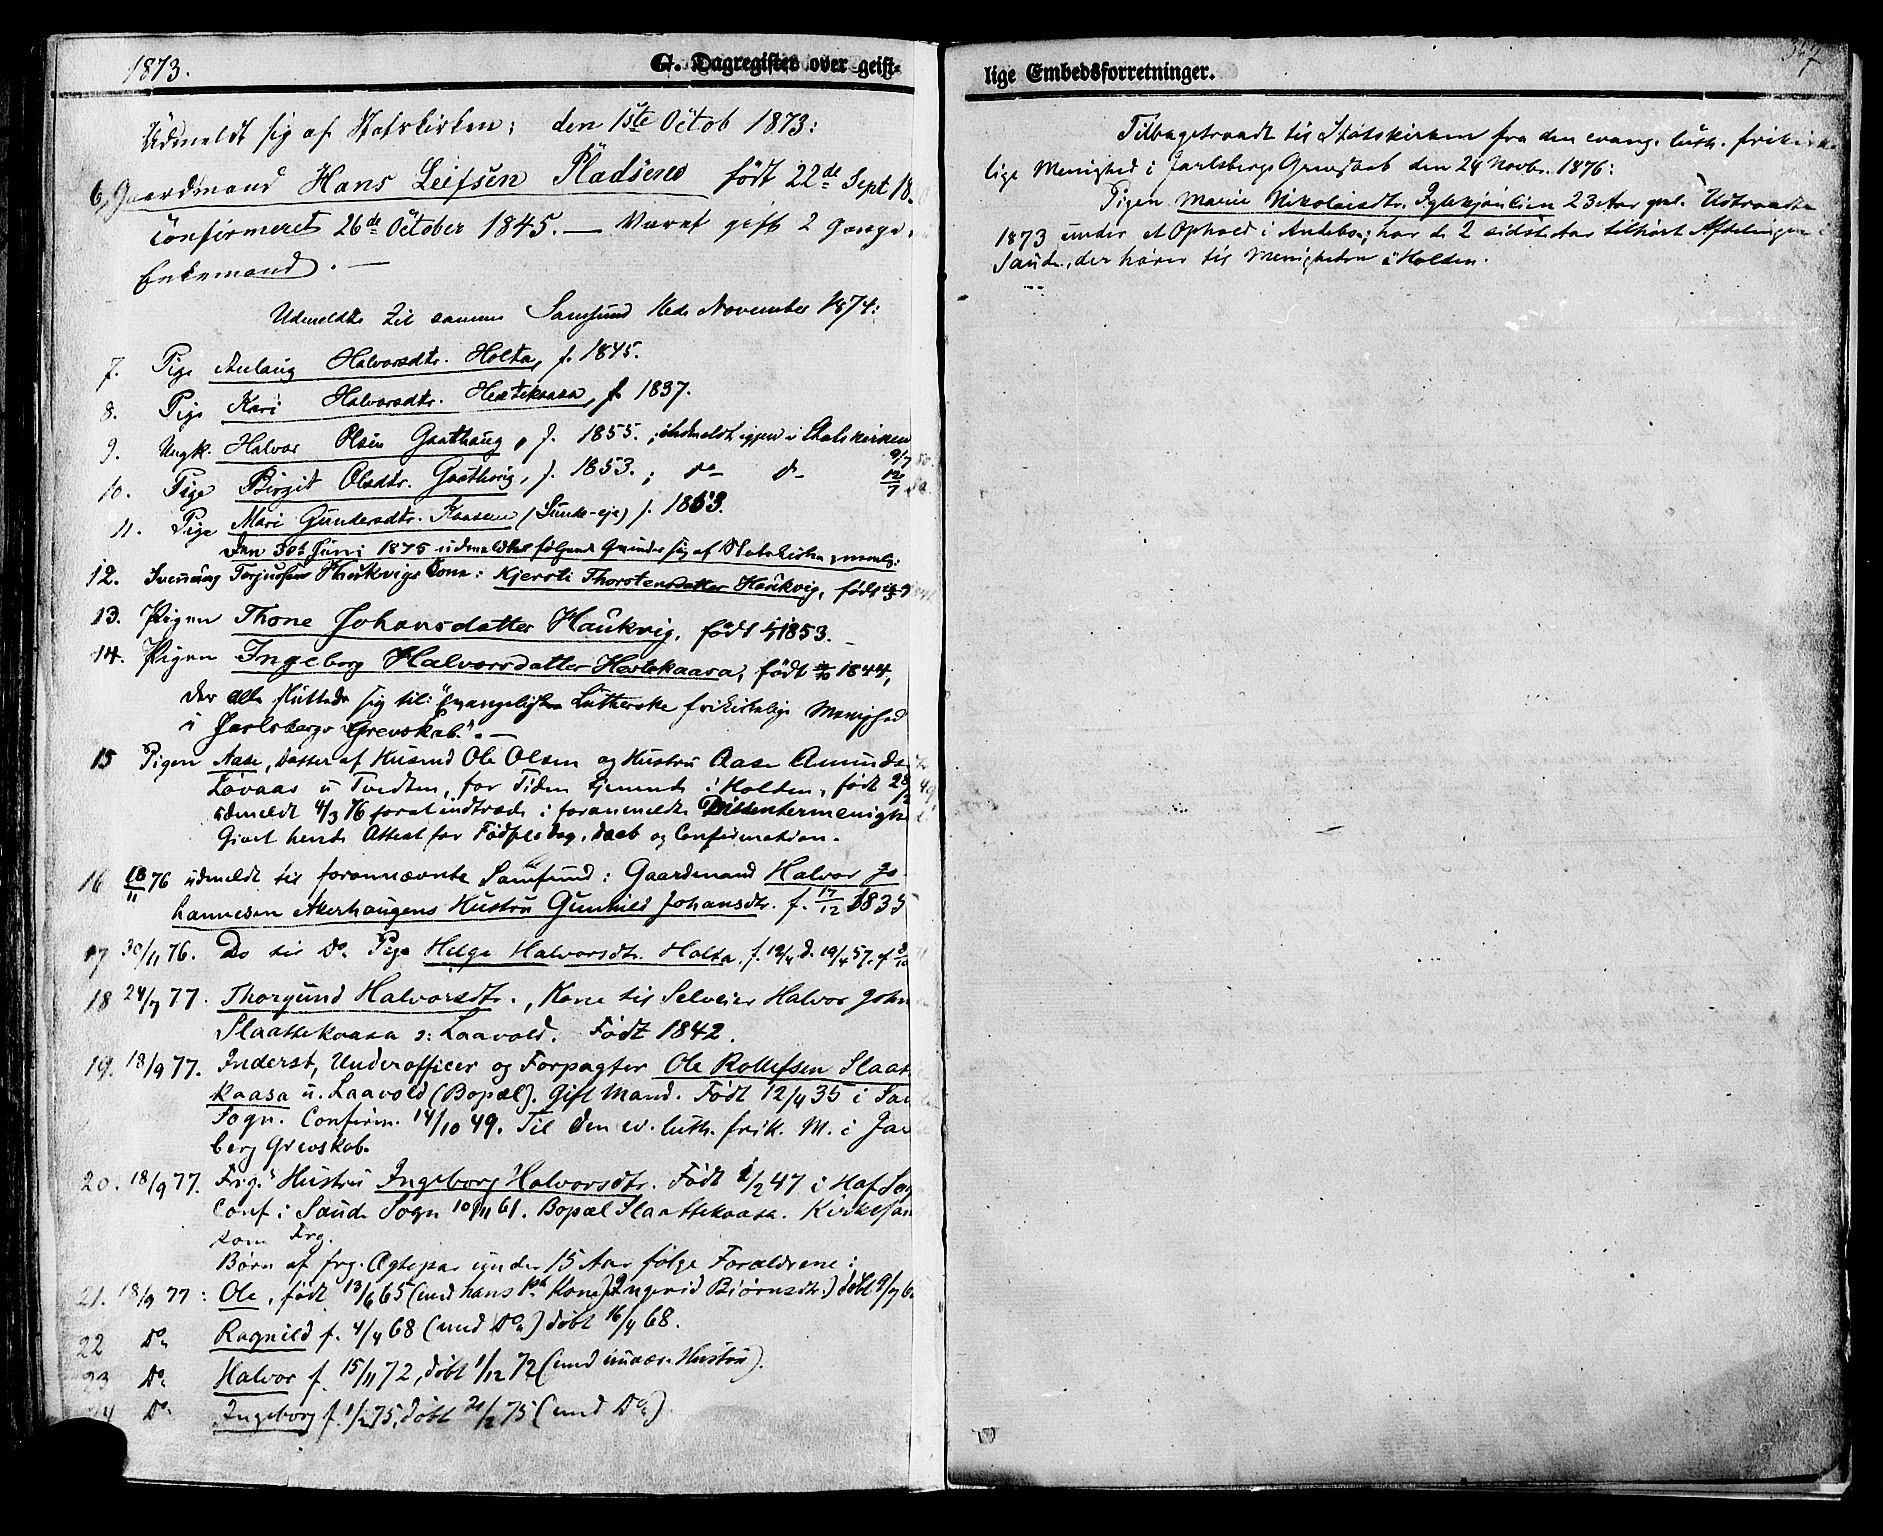 1873.
G. Dagregister over geist-
Udmeldt sig af Statskirken: den 1ste Octob 1873:
6, Gaardmand Hans Leifsen Pladsene født 22de Sept 18
Confirmeret 26de October 1845. — Været gift 2 Gange.
Enkemand. —
Udmeldte til samme Samfund 16de November 1874:
7. Pige Aulaug Halvorsdtr. Holta, f. 1845.
8. Pige Kari Halvorsdtr. Hestekaasa, f. 1837.
9. Ungk. Halvor Olsen Gaathaug, f. 1855. ; indmeldt igjen i Statskirken 9/7
10. Pige Birgit Olsdtr. Gaathaug, f. 1853. ; do d- 12/7
11. Pige Mari Gundersdtr. Kaasene (Sunde-eje) f. 1853.
Den 30te Juni 1875 udmeldte følgende Qvinder sig af Statskirken, nemlig:
12. Svennung Torjussen Haukvigs Kone: Kjersti Thorstensdatter Haukvig, født
13. Pigen Thone Johansdatter Haukvig, født 1853. —
14. Pigen Ingeborg Halvorsdatter Hestekaasa, født 1844,
der alle sluttede sig til: "Evangelisk Lutherske frikirkelige Menighed
i Jarlsbergs Grevskab". —
15 Pigen Aase, Datter af Husmd Ole Olsen og Hustru Aase Amunds
Løvaas u Tvedten, for Tiden tjenende i Holden, født 28/2
udmeldt 4/3 76 for at indtræde i foranmeldte Dissentermenigh
Givet hende Attest for Fødselsdag, Daab og Confirmation.
16 18/11 76 udmeldt til forannævnte Samfund: Gaardmand Halvor Jo-
hannesen Akerhaugens Hustru Gunhild Johansdtr. f. 17/12 1835
17 30/11 76. Do til Do. Pige Helge Halvorsdtr. Holta, f. 12/4 d. 19/4 57.
18 24/7 77. Thorgund Halvorsdtr., Kone til Selveier Halvor John
Slaattekaasa o: Laavold. Født 1842.
19. 18/9 77. Inderst, Underofficer og Forpagter Ole Rollefsen Slaat
kaasa u. Laavold (Bopæl). Gift Mand. Født 12/4 35 i Sau
Sogn. Confirm. 14/10 49. Til den ev. luth. frik. M. i Jar
berg Grevskab.
20. 18/9 77. Frg.s Hustru Ingeborg Halvorsdtr. Født 2/2 47 i Hof Sog
Conf i Saude Sogn 10/11 61. Bopæl Slaattekaasa. Kirkesam
som Frg.
Børn af frg. Ægtepar under 15 Aar følge Forældrene:
21. 18/9 77: Ole, født 13/6 65 (med hans 1ste Kone Ingerid Biørnsdtr.) døbt 9/7 6
22 Do. Ragnild f. 4/4 68 (med Do.) døbt 16/4 68.
23 Do. Halvor f. 15/11 72, døbt 1/12 72 (med nuvær. Hustru).
24 Do. Ingeborg f. 1/2 75, døbt 21/2 75 (med Do.)
lige Embedsforretninger.
Tilbagetraadt til Statskirken fra den evang. luth. frikirke
lige Menighed i Jarlsbergs Grevskab den 24 Novbr. 1876:
Pigen Marie Nikolaisdtr. 23 Aar gml. Udtraadte
1873 under et Ophold i Andebo; har de 2 sidste Aar tilhørt Afdelingen i
Saude, der hører til Menigheden i Holden.